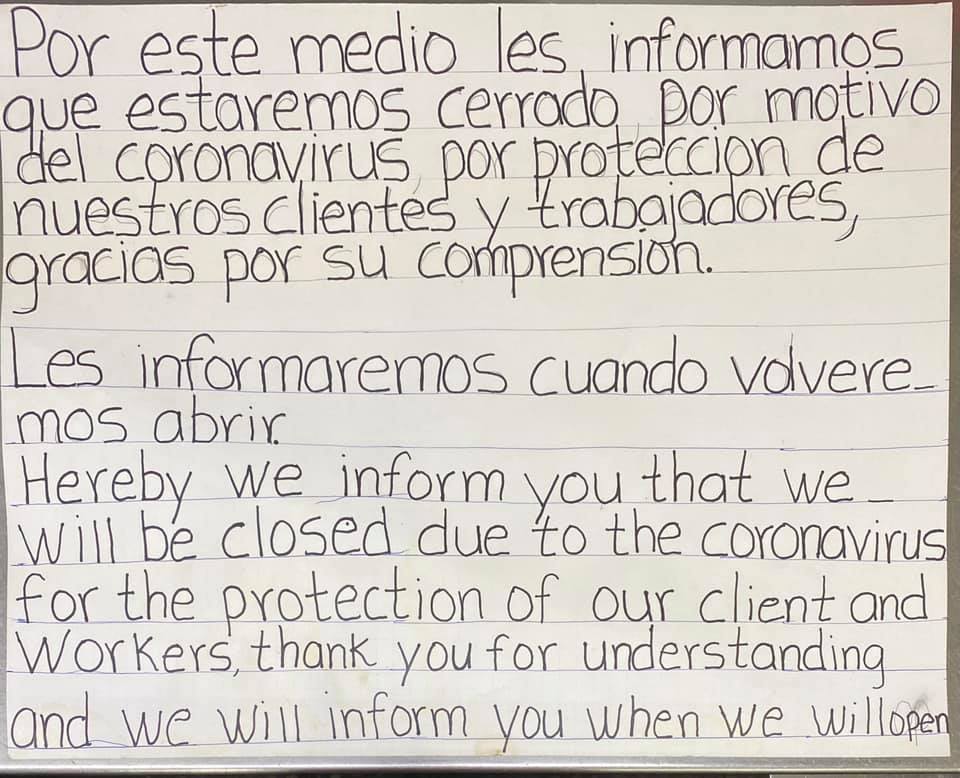 Por este medio les informamos
que estaremos cerrado por motivo
del coronavirus por proteccion de
nuestros clientes y trabajadores,
gracias por su comprensión.
Les informaremos cuando volvere_
mos abrir.
Hereby we inform you that we _
will be closed due to the coronavirus
for the protection of our client and
Workers, thank you for understanding
and we will inform you when we will open